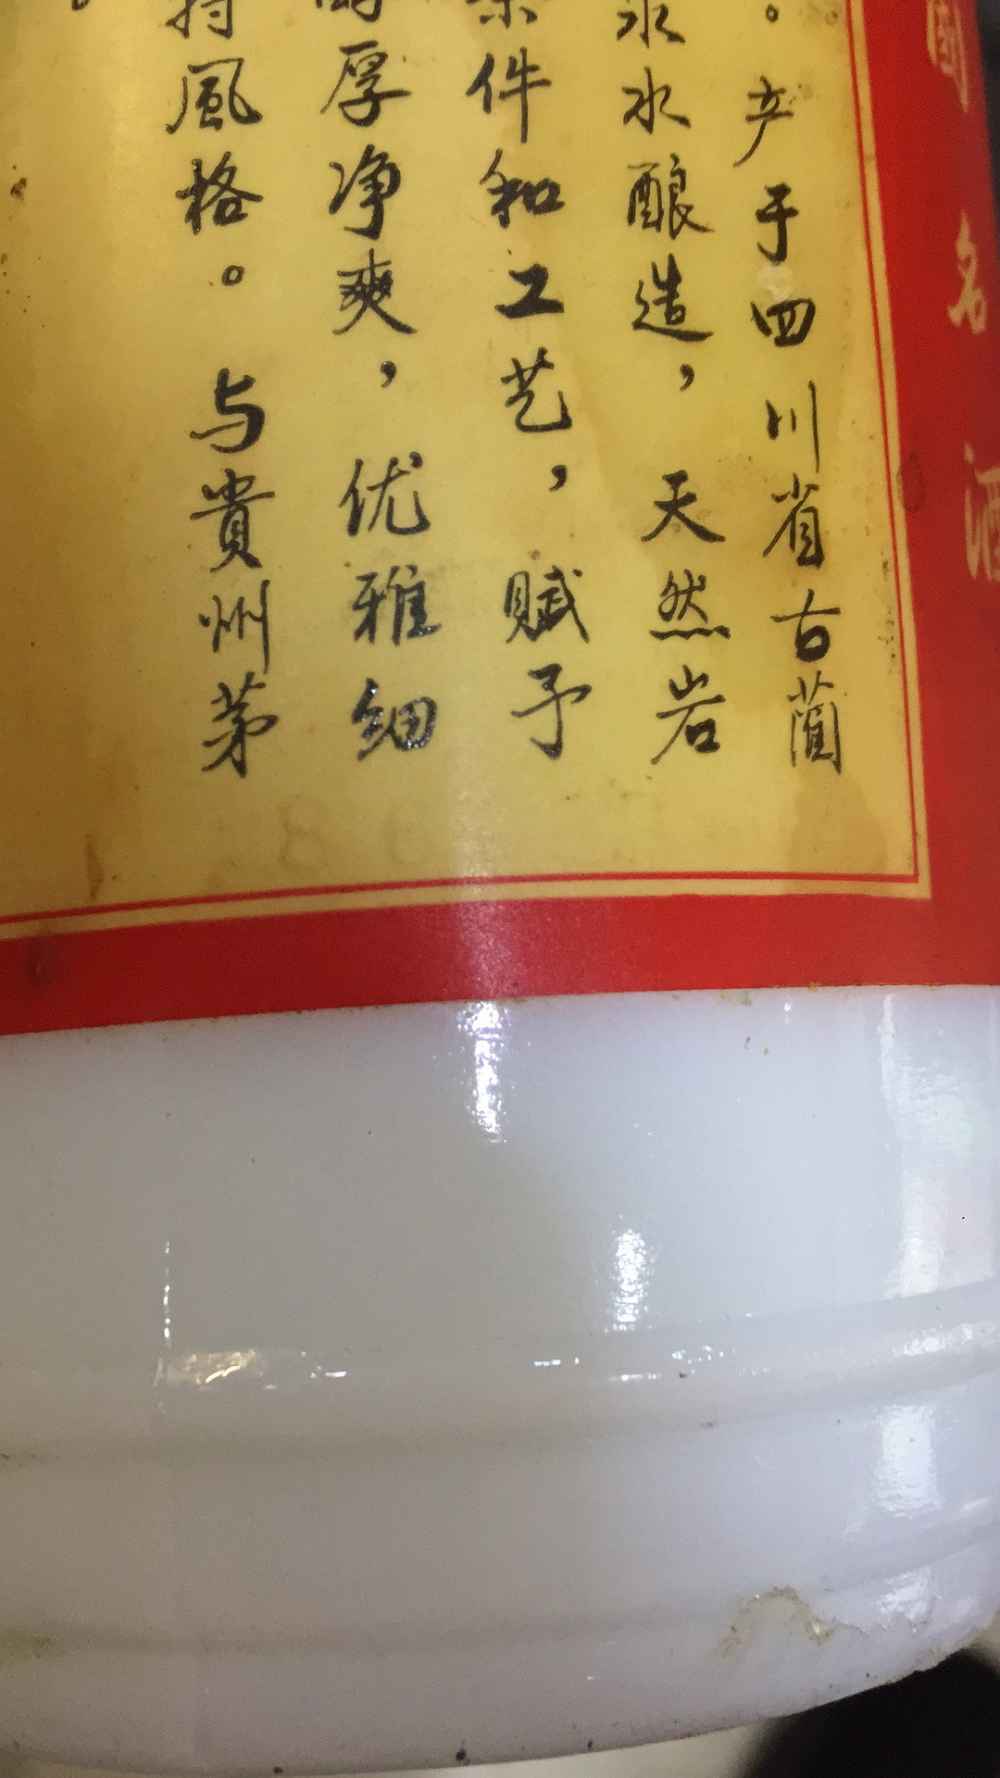 國名酒
。产于四川省古蔺
水酿造，天然岩
条件和工艺，赋予
厚净爽，优雅细
特風格。与貴州茅